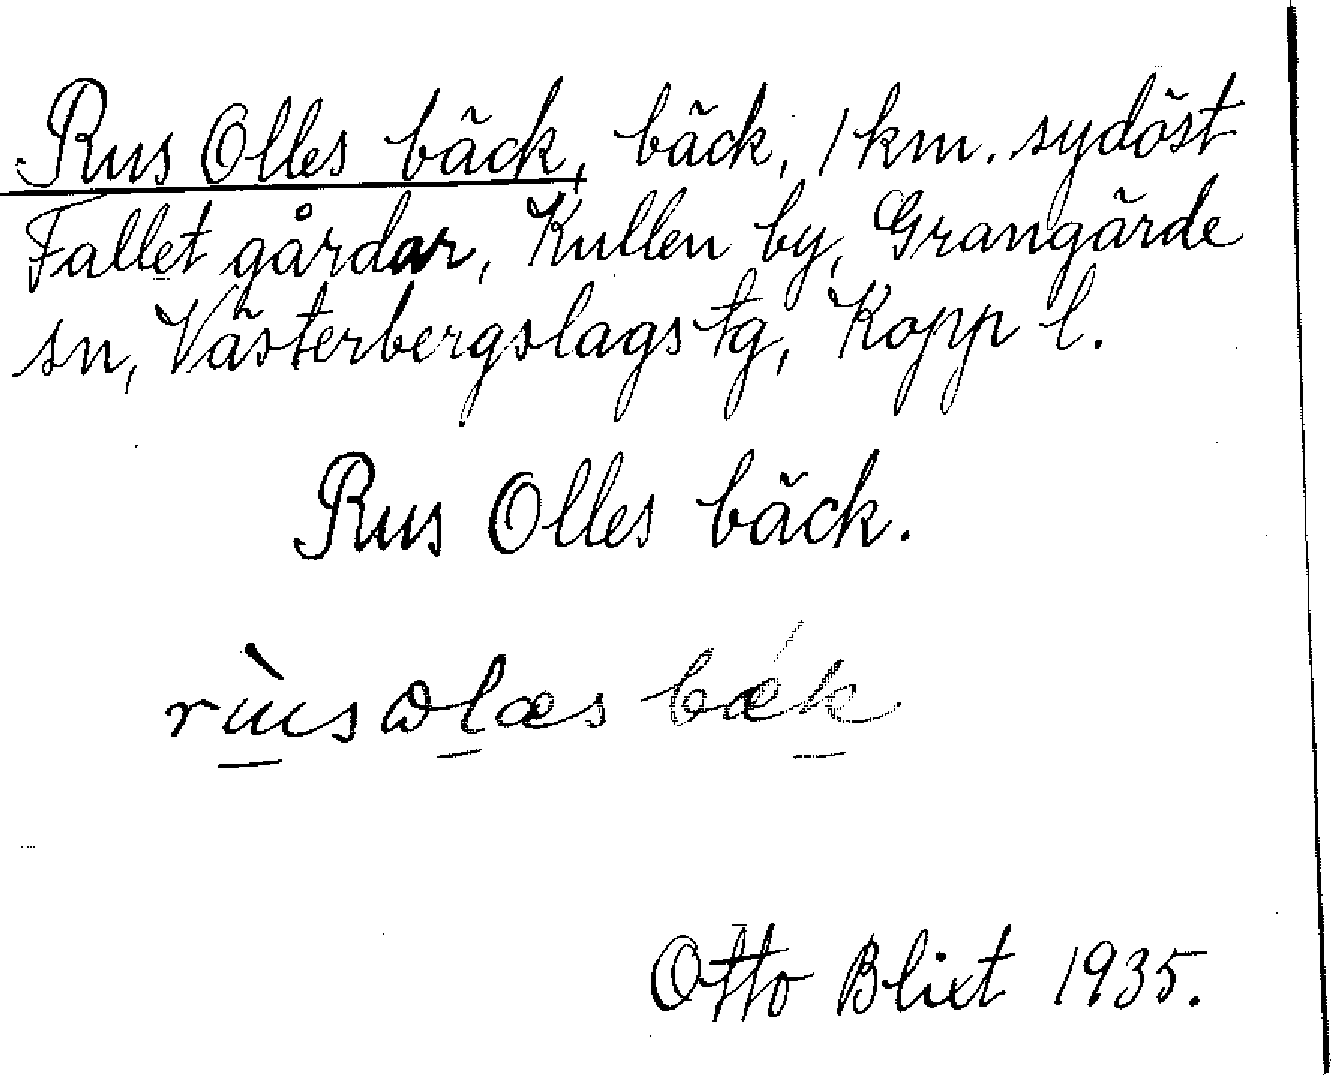 Rus Olles bäck, bäck, 1 km. sydöst
Fallet gårdar, Kullen by, Grangärde
sn, Västerbergslags tg, Kopp l.
Rus Olles bäck.
Otto Blixt 1935.